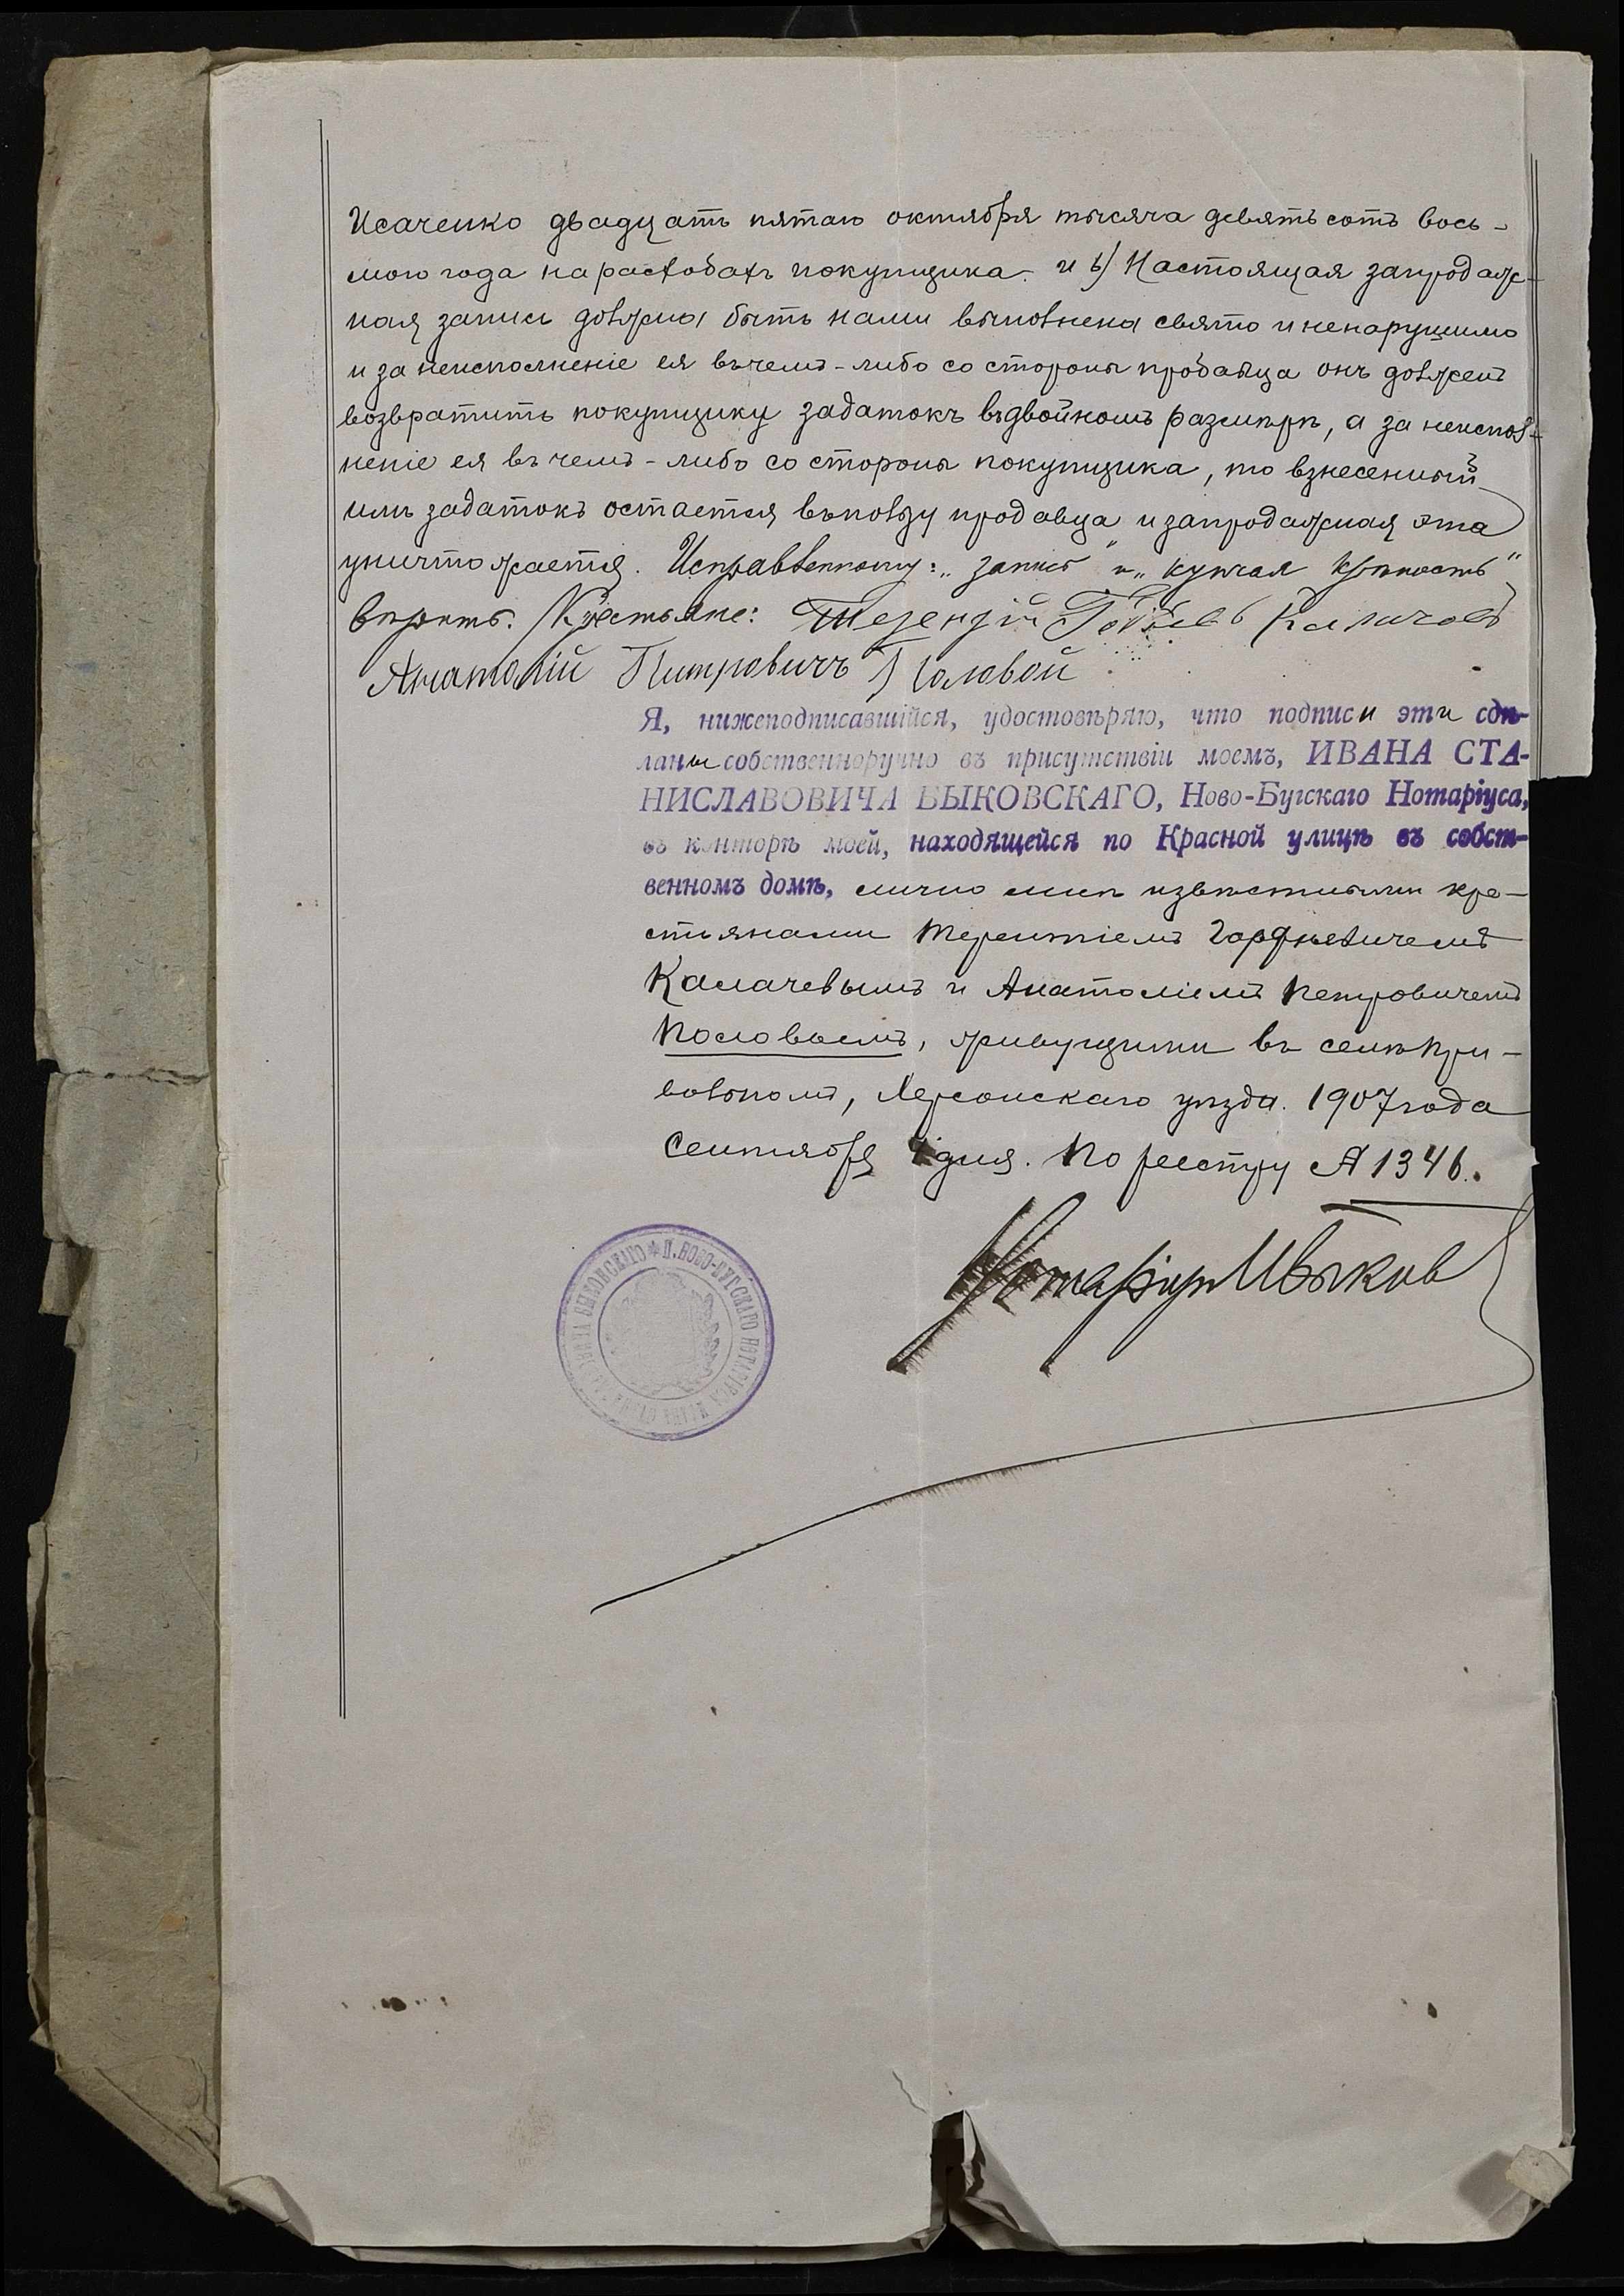 Исаченко двадцать пятаго октября тысяча девятьсотъ вось-
маго года на расходахъ покупщика. и в) Настоящая запродаж-
ная запись должна быть нами выполнена свято и ненарушимо
и за неисполненіе ея въ чемъ-либо со стороны продавца онъ долженъ
возвратить покупщику задатокъ въ двойномъ размѣрѣ, а за неиспол-
неніе ея въ чемъ-либо со стороны покупщика, то взнесенный
имъ задатокъ остается въ пользу продавца и запродажная эта
уничтожается. Исправленному: „запись" и „купчая крѣпость"
вѣрить. Крестьяне: Терентій Калачовъ
Анатолій Питровичъ
Я, нижеподписавшійся, удостовѣряю, что подписи эти сдѣ-
ланы собственноручно въ присутствіи моемъ, ИВАНА СТА-
НИСЛАВОВИЧА БЫКОВСКАГО, Ново-Бугскаго Нотаріуса,
въ конторѣ моей, находящейся по Красной улицѣ въ собст-
венномъ домѣ, лично мнѣ извѣстными кре-
стьянами Терентіемъ Гордѣевичемъ
Калачевымъ и Анатоліемъ Петровичемъ
Пословымъ, живущими въ селѣ При-
вольномъ, Херсонскаго уѣзда. 1907 года
Сентября 4 дня. По реестру № 1346.
Нотаріусъ ИБыков
П. НОВО-БУГСКАГО НОТАРІУСА ИВАНА СТАНИСЛАВОВИЧА БЫКОВСКАГО